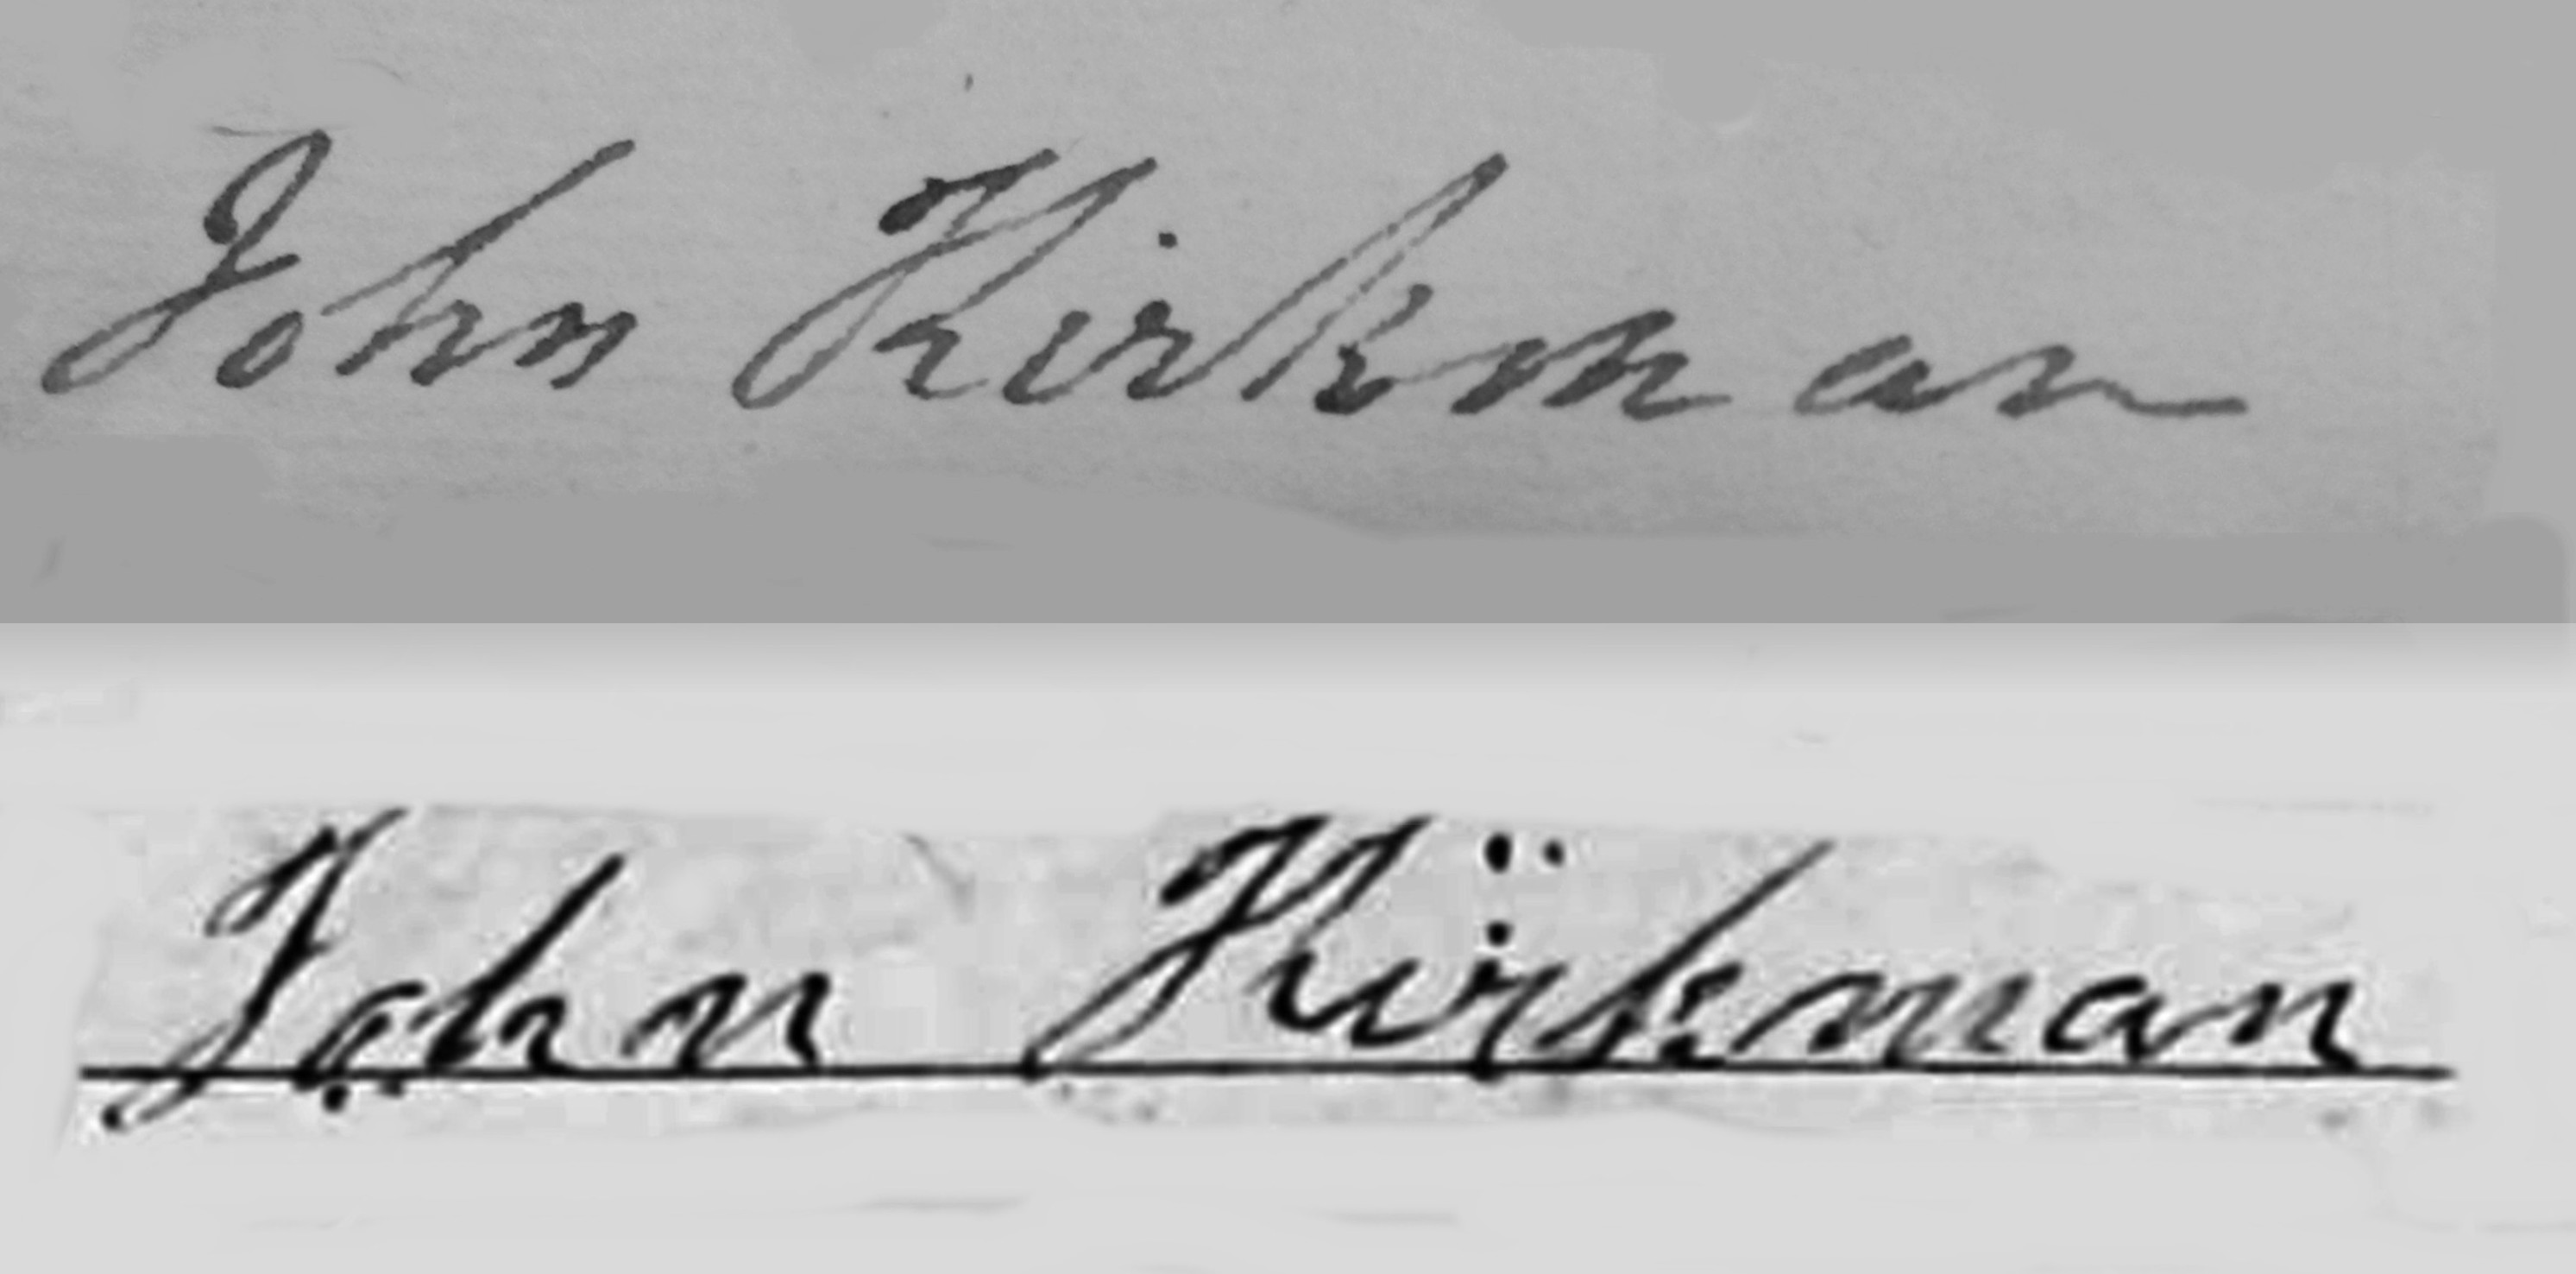 John Kirkman
John Kirkman